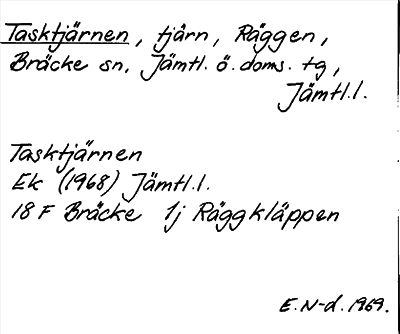 Tasktjärnen, tjärn, Räggen,
Bräcke sn, Jämtl. ö. doms. tg,
Jämtl.l.
Tasktjärnen
Ek (1968) Jämtl.l.
18 F Bräcke 1j Räggkläppen
E. N-d. 1969.